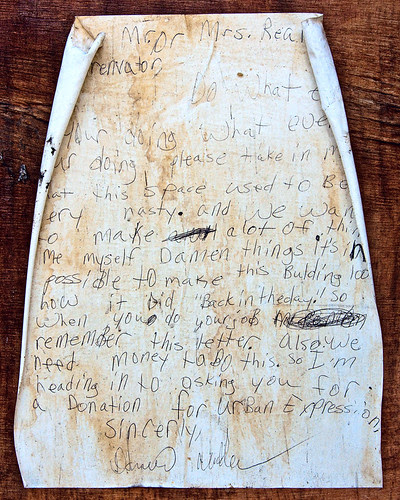 Mr. or Mrs. Real
renvator,
Do what e
Your doing "what eve
ur doing please take in m
at this space used to Be
ery nasty. and we wan
o make a lot of thin
me myself Damen things it's in
possible to make this Bulding loo
how it Did "Back in the day." So
when you do your job
remember this letter Also, we
need money to do this. So I'm
heading in to asking you for
a Donation for Urban Expression,
Sincerly,